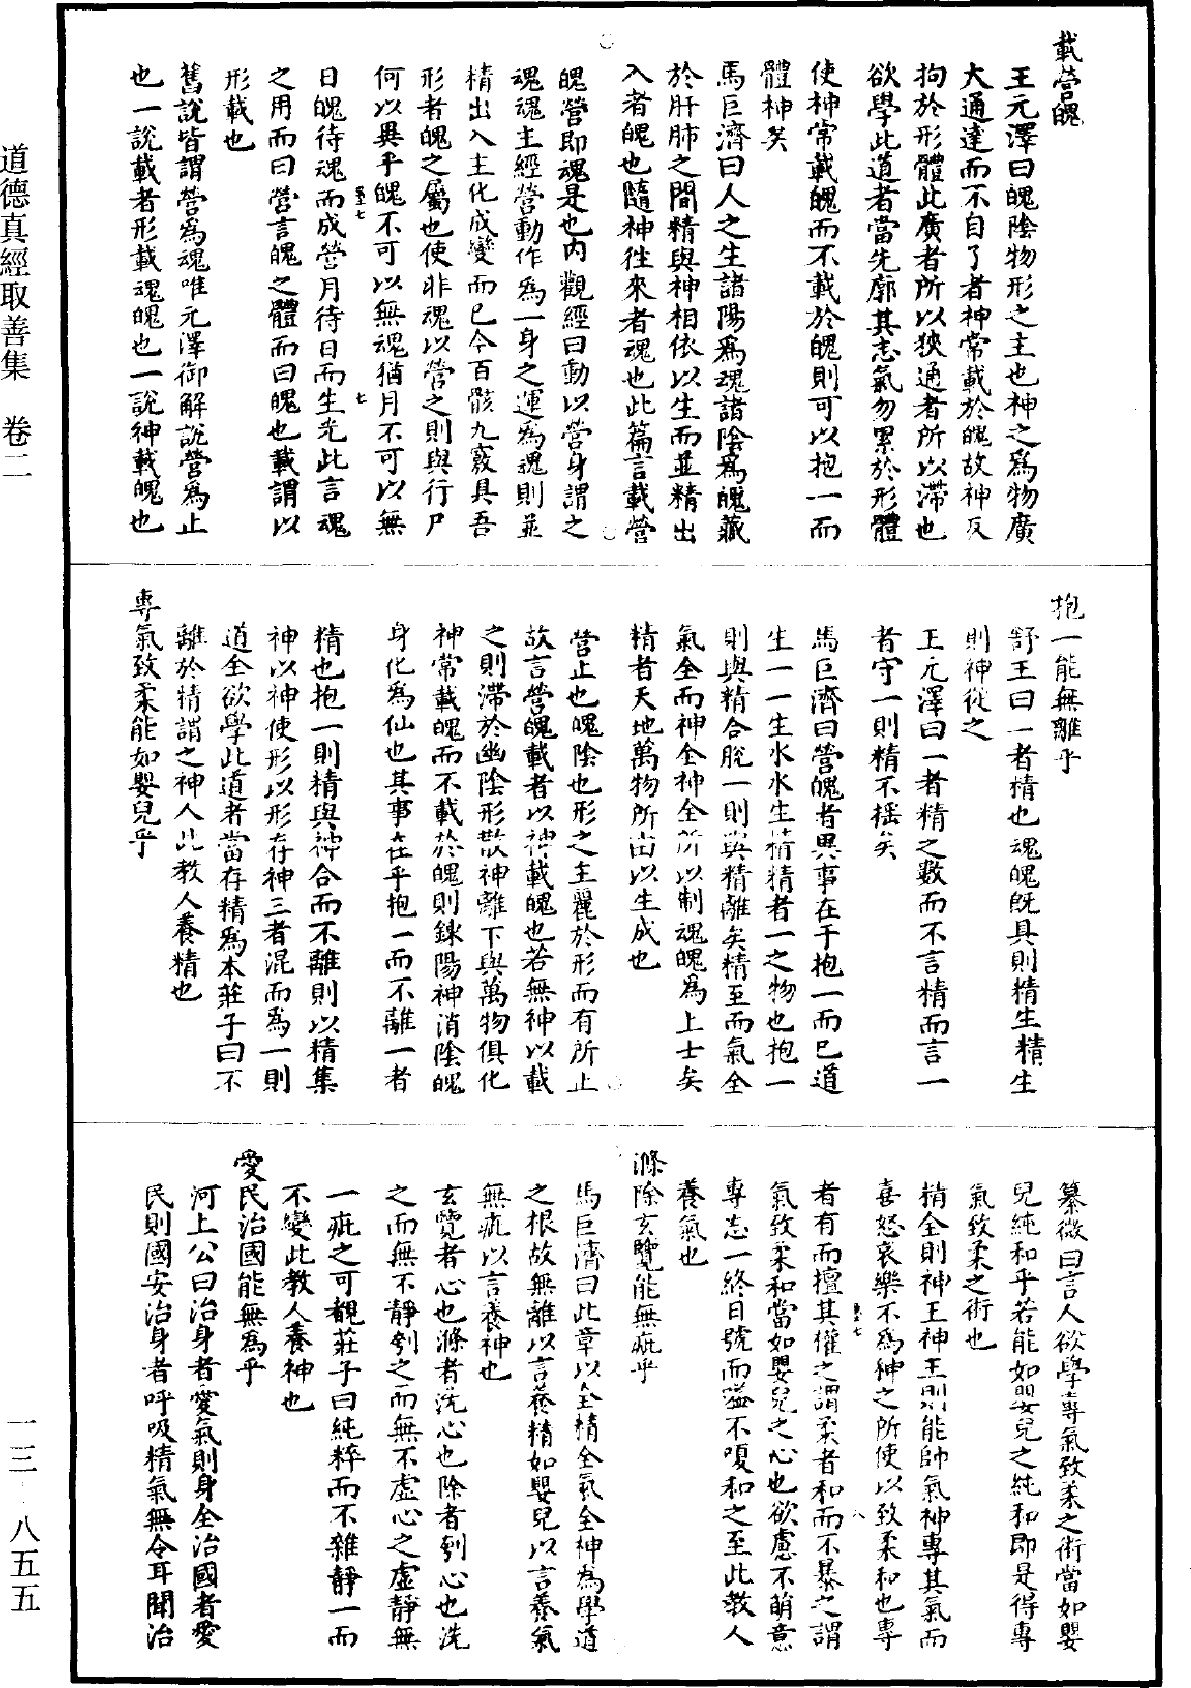 載營魄
王元澤曰魄陰物形之主也神之為物廣
大通達而不自了者神常載於魄故神反
拘於形體此廣者所以狹通者所以滯也
欲學此道者當先廓其志氣勿累於形體
使神常載魄而不載於魄則可以抱一而
體神矣
馬巨濟曰人之生諸陽為魂諸陰為魄藏
於肝肺之間精與神相依以生而並精出
入者魄也隨神往來者魂也此篇言載營
魄營即魂是也内觀經曰動以營身謂之
魂魂主經營動作為一身之運為魂則並
精出入主化成變而已今百骸九竅具吾
形者魄之屬也使非魂以營之則與行尸
何以異乎魄不可以無魂猶月不可以無
日魄待魂而成營月待日而生光此言魂
之用而曰營言魄之體而曰魄也載謂以
形載也
舊說皆謂營為魂唯元澤御解說營為止
也一說載者形載魂魄也一說神載魄也
抱一能無離乎
舒王曰一者精也魂魄既具則精生精生
則神從之
王元澤曰一者精之數而不言精而言一
者守一則精不搖矣
馬巨濟曰營魄者異事在于抱一而已道
生一一生水水生精精者一之物也抱一
則與精合脫一則與精離矣精至而氣全
氣全而神全神全所以制魂魄為上士矣
精者天地萬物所由以生成也
營止也魄陰也形之主麗於形而有所止
故言營魄載者以神載魄也若無神以載
之則滯於幽陰形散神離下與萬物俱化
神常載魄而不載於魄則鍊陽神消陰魄
身化為仙也其事在乎抱一而不離一者
精也抱一則精與神合而不離則以精集
神以神使形以形存神三者混而為一則
道全欲學此道者當存精為本莊子曰不
離於精謂之神人此教人養精也
專氣致柔能如嬰兒乎
纂微曰言人欲學專氣致柔之術當如嬰
兒純和乎若能如嬰兒之純和即是得專
氣致柔之術也
精全則神王神王則能帥氣神專其氣而
喜怒哀樂不為神之所使以致柔和也專
者有而擅其權之謂柔者和而不暴之謂
氣致柔和當如嬰兒之心也欲慮不萌意
專志一終日號而嗌不嗄和之至此教人
養氣也
滌除玄覽能無疵乎
馬巨濟曰此章以全精全氣全神為學道
之根故無離以言養精如嬰兒以言養氣
無疵以言養神也
玄覽者心也滌者洗心也除者刳心也洗
之而無不靜刳之而無不虛心之虛靜無
一疵之可觀莊子曰純粹而不雜靜一而
不變此教人養神也
愛民治國能無為乎
河上公曰治身者愛氣則身全治國者愛
民則國安治身者呼吸精氣無令耳聞治
道德真經取善集　卷二
一三　八五五